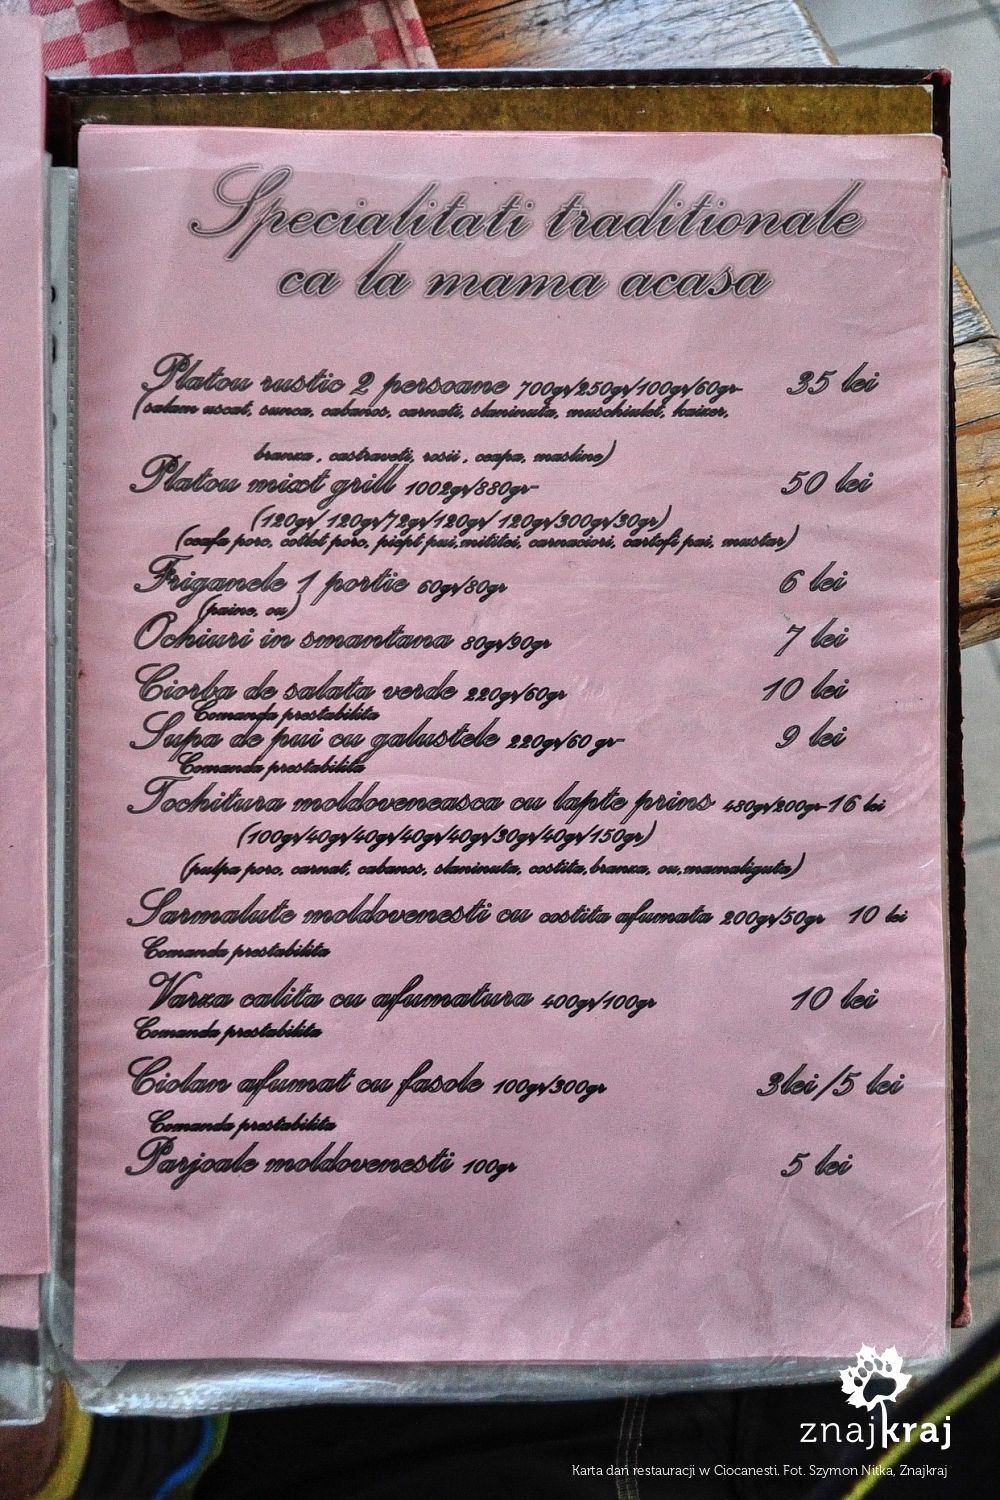 Specialitati traditionale
ca la mama acasa
Platou rustic 2 persoane 700gr/250gr/100gr/60gr 35 lei
(salam uscat, sunca, cabanos, carnati, slaninuta, muschiulet, kaizer,
branza , castraveti, rosii , ceapa, masline)
Platou mixt grill 1002gr/880gr 50 lei
(120gr/ 120gr/72gr/120gr/ 120gr/300gr/30gr)
(ceafa porc, cotlet porc, piept pui,mititei, carnaciori, cartofi pai, mustar)
Friganele 1 portie 60gr/80gr 6 lei
(paine, ou)
Ochiuri in smantana 80gr/90gr 7 lei
Ciorba de salata verde 220gr/60gr 10 lei
Comanda prestabilita
Supa de pui cu galustele 220gr/60 gr 9 lei
Comanda prestabilita
Tochitura moldoveneasca cu lapte prins 480gr/200gr-16 lei
(100gr/40gr/40gr/40gr/40gr/30gr/40gr/150gr)
(pulpa porc, carnat, cabanos, slaninuta, costita,branza, ou,mamaliguta)
Sarmalute moldovenesti cu costita afumata 200gr/50gr 10 lei
Comanda prestabilita
Varza calita cu afumatura 400gr/100gr 10 lei
Comanda prestabilita
Ciolan afumat cu fasole 100gr/300gr 3lei/5 lei
Comanda prestabilita
Parjoale moldovenesti 100gr 5 lei
znajkraj
Karta dań restauracji w Ciocanesti. Fot. Szymon Nitka, Znajkraj